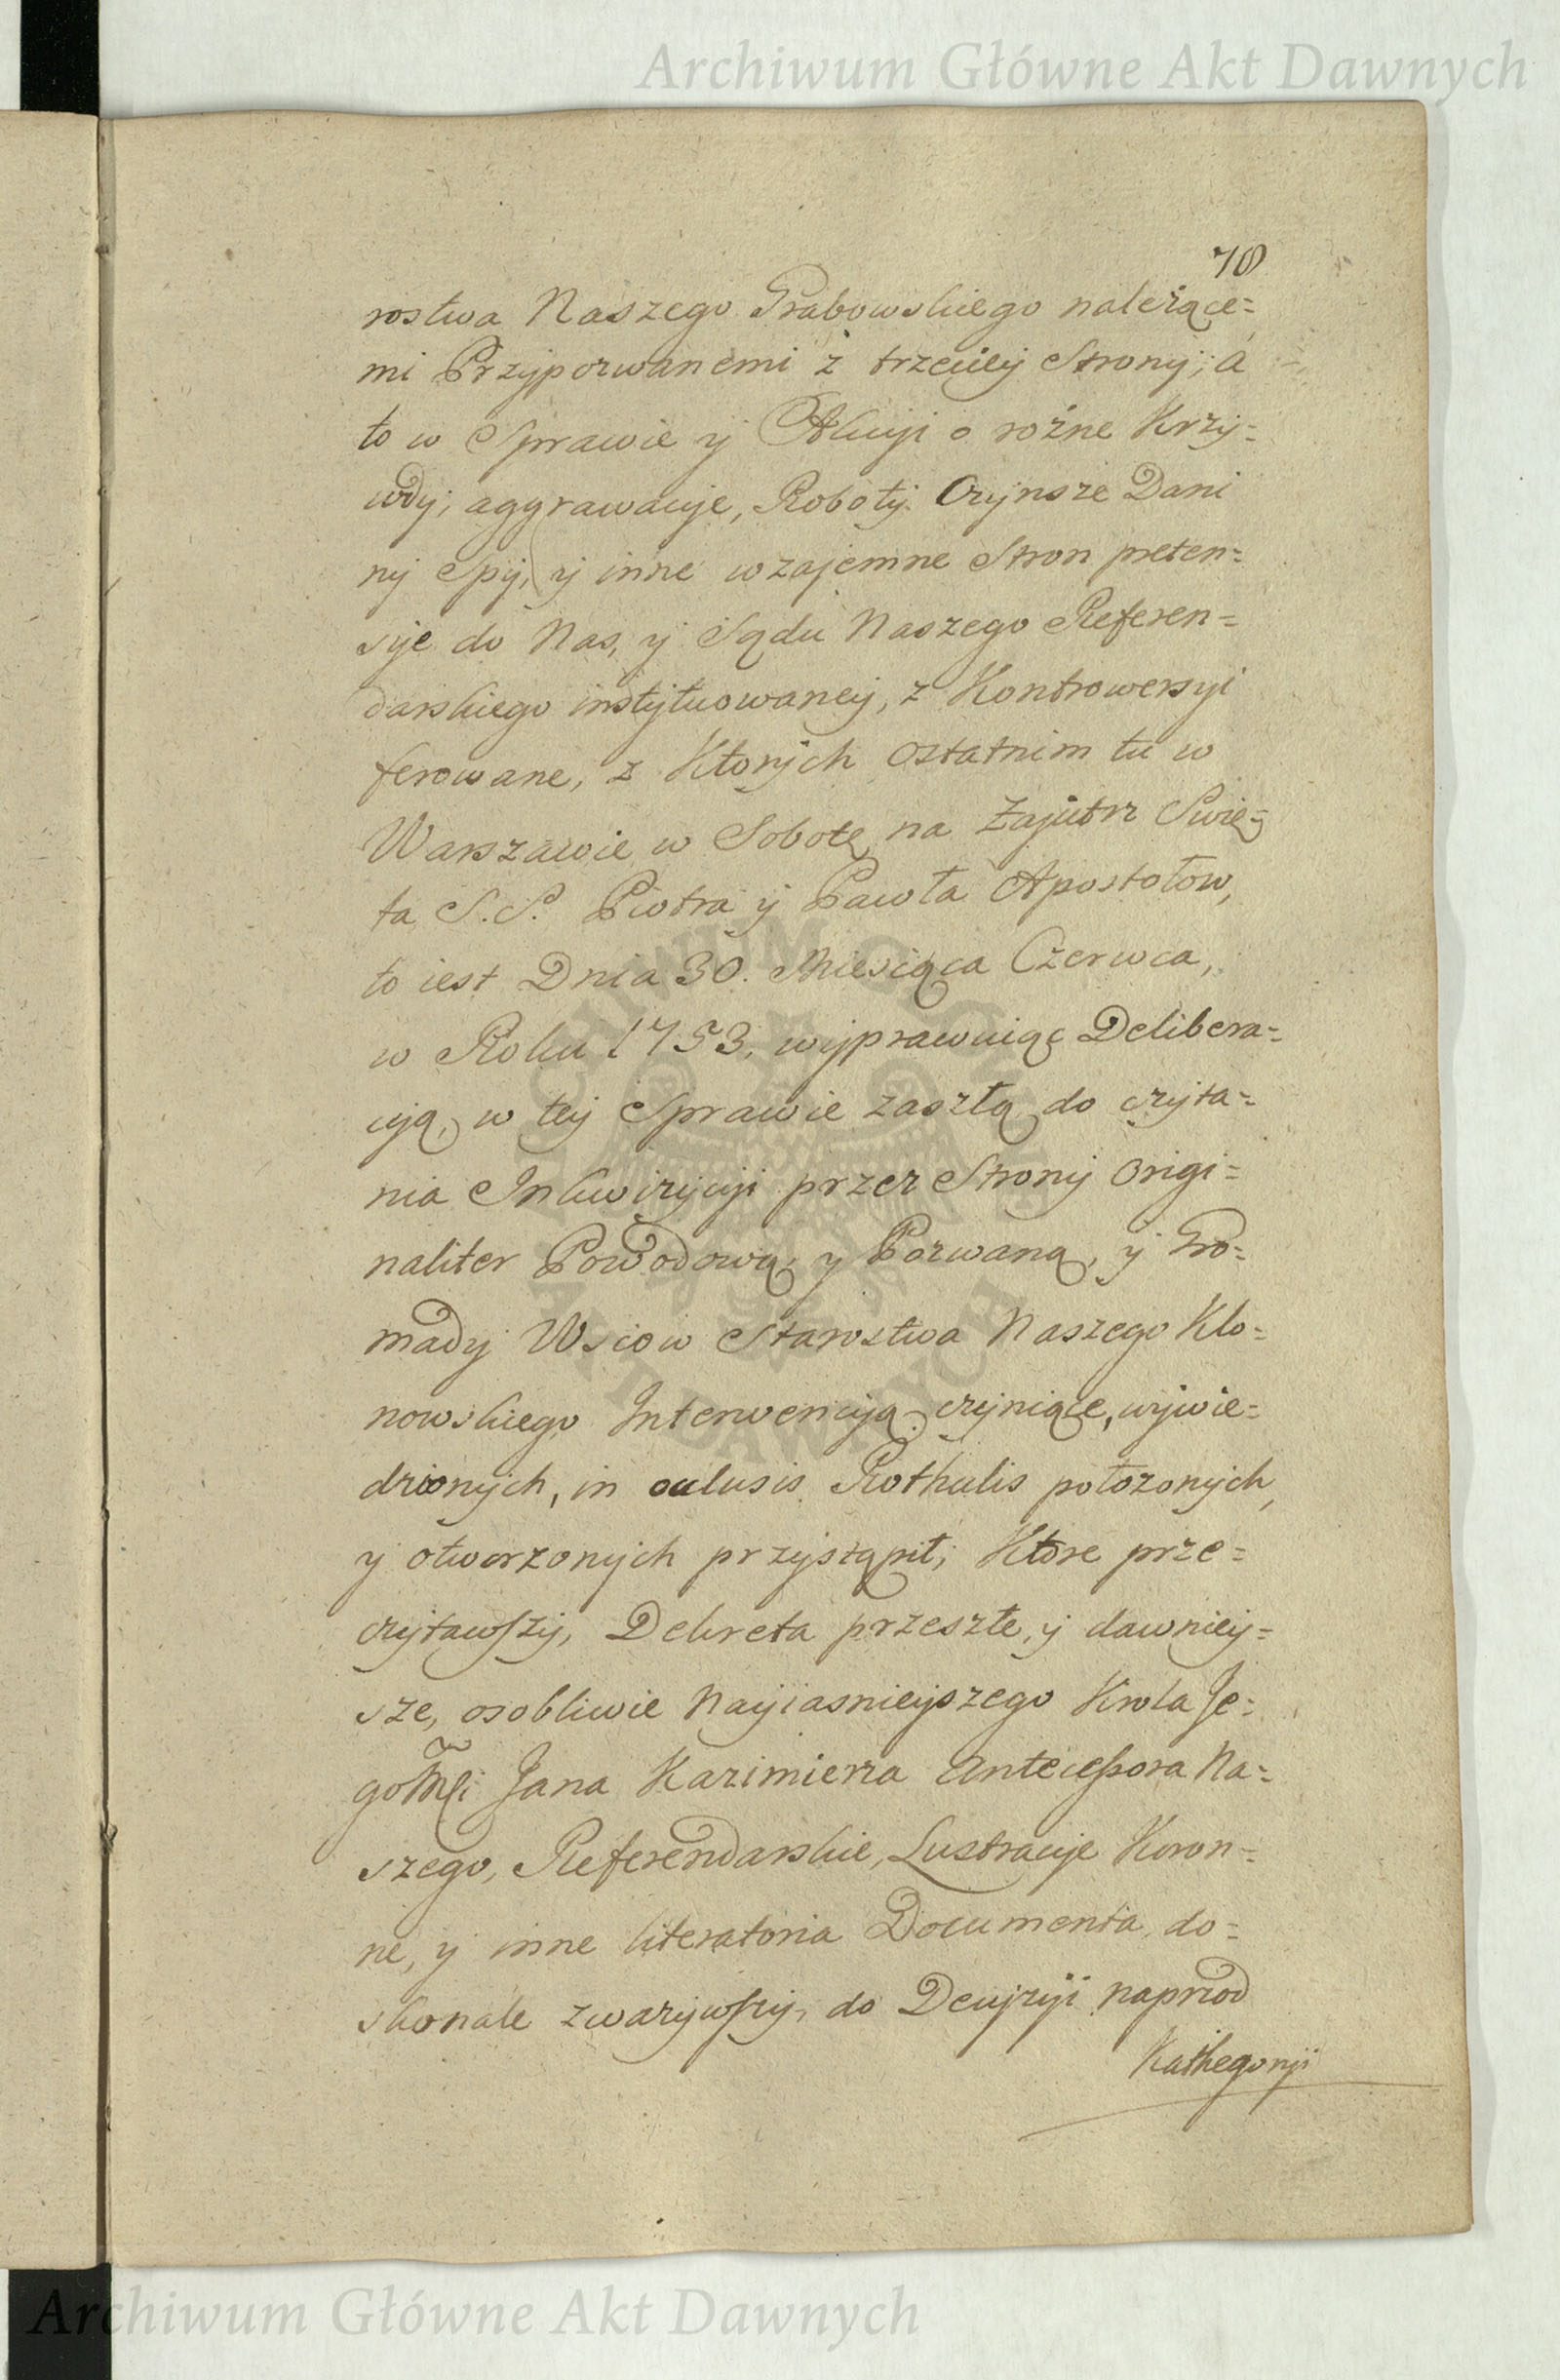 Archiwum Główne Akt Dawnych
78
rostwa Naszego Grabowskiego nalezące=
mi Przypozwanemi z trzeciey Strony; á
to w Sprawie y Akcyi o rożne Krzy=
wdy, aggrawacye, Roboty Czynsze Dani
ny Spy, y inne wzajemne Stron preten=
sye do Nas, y Sądu Naszego Referen=
darskiego instytuowaney, z Kontrowersyi
ferowane, z Ktorych ostatnim tu w
Warszawie w Sobotę na Zajutrz Swię=
ta S.S. Piotra y Pawła Apostołow,
to iest Dnia 30. Miesiąca Czerwca,
w Roku 1753. wyprawuiąc Delibera=
cyą, w tey Sprawie zaszłą do czyta=
nia Inkwizycyi przez Strony origi=
naliter Powodową y Pozwaną, y Gro=
mady Wsiow Starostwa Naszego Klo=
nowskiego Interwencyą czyniące, wywie=
dzionych, in oclusis Rothulis położonych,
y otworzonych przystąpił; Ktore prze=
czytawszy, Dekreta przeszłe, y dawniey=
sze, osobliwie Nayiasnieyszego Krola Je=
goMści Jana Kazimierza Antecessora Na=
szego, Referendarskie, Lustracye Koron=
ne, y inne literatoria Documenta, do=
skonale zwazywszy, do Decyzyi naprzod
Kathegoryi
Archiwum Główne Akt Dawnych